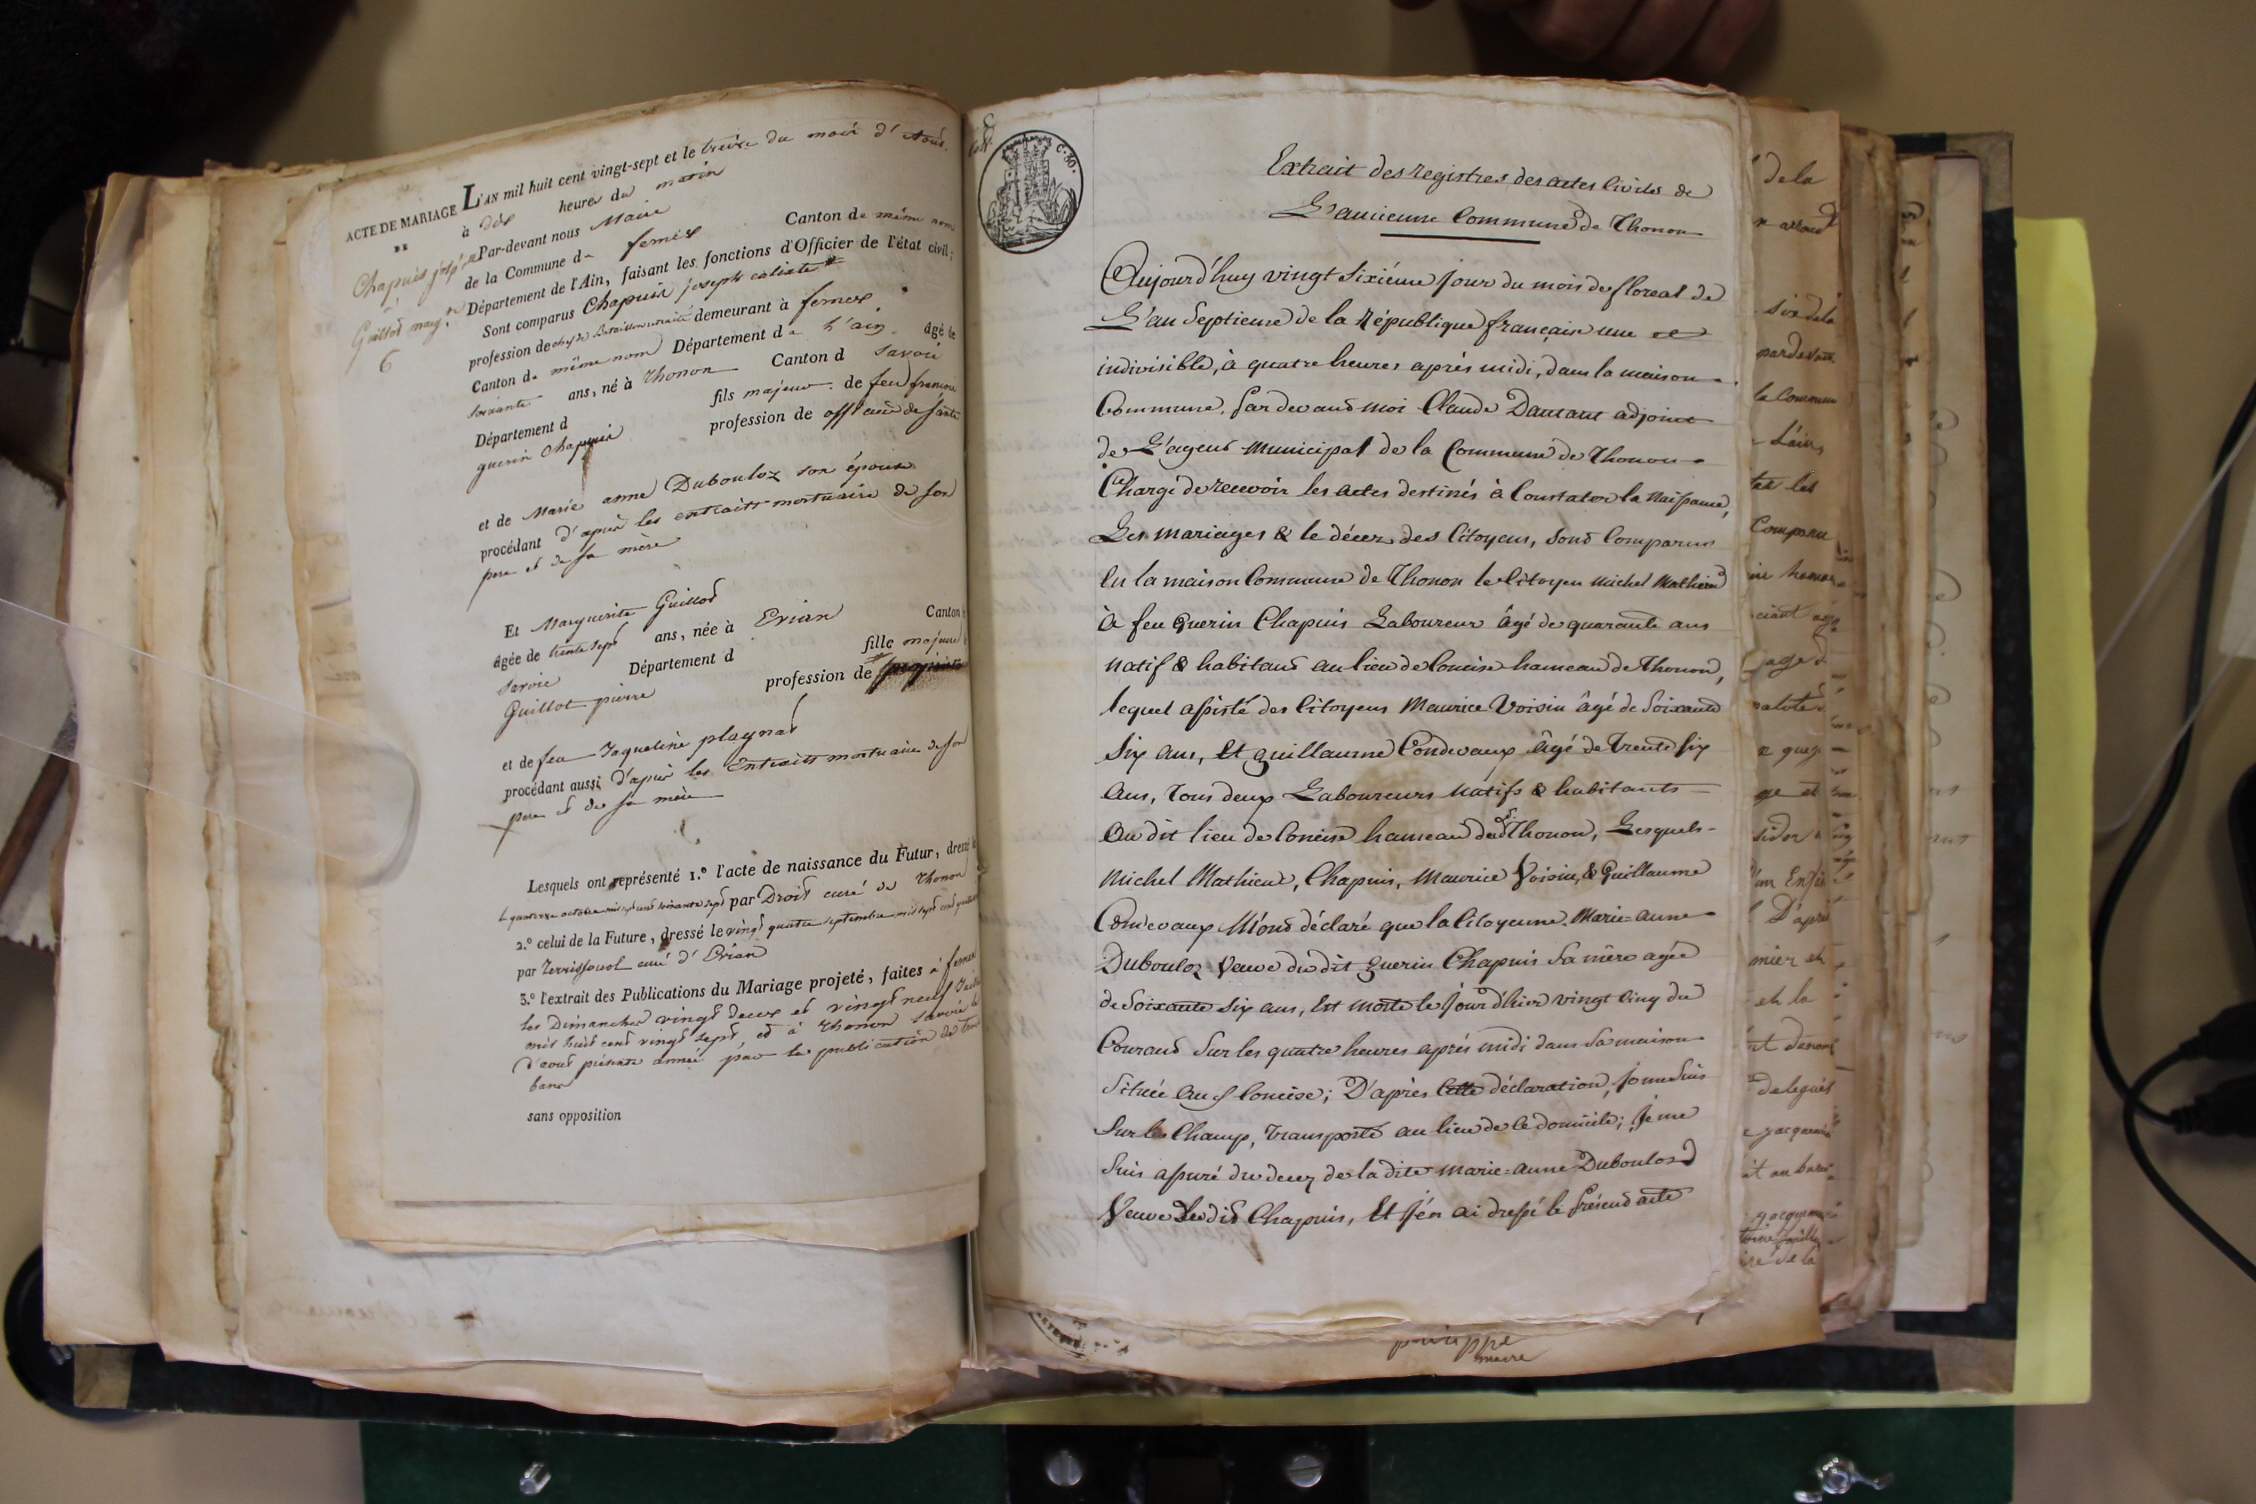 ACTE DE MARIAGE L'AN mil huit cent vingt-sept et le treize du mois d'Août
DE à dix heures du matin
Chapuis Par-devant nous Maire
de la Commune de fernex Canton de même nom
Guillot Département de l'Ain, faisant les fonctions d'Officier de l'état civil;
6 Sont comparus Chapuis joseph calixte
profession de chef de Bataillon retraité demeurant à fernex
Canton de même nom Département de L'ain âgé de
soixante ans, né à Thonon Canton d savoie
Département d fils majeur de feu françois
guerin Chapuis profession de officier de santé
et de Marie anne Dubouloz son épouse
procédant d'après les extraits mortuaire de son
pere et de sa mère
Et Marguerite Guillot
âgée de trente sept ans, née à Evian Canton
savoie Département d fille majeure
Guillot pierre profession de
et de feu Jaqueline playnat
procédant aussi d'après les Extraits mortuaire de son
pere et de sa mère
Lesquels ont représenté 1.º l'acte de naissance du Futur, dressé le
quatorze octobre mil sept cent soixante sept par Droit curé de Thonon
2.º celui de la Future, dressé le vingt quatre septembre mil sept cent
par curé d'Evian
3.º l'extrait des Publications du Mariage projeté, faites à fernex
les Dimanches vingt deux et vingt neuf
mil huit cent vingt sept, et à Thonon savoie le
d'aout présente année par la publication de trois
bans
sans opposition
Extrait des registres des actes Civils de
L'ancienne Commune de Thonon
Aujourd'huy vingt sixiéme jour du mois de floreal de
L'an Septieme de la République française une et
indivisible, à quatre heures après midi, dans la maison
Commune, par devant moi Claude Dantant adjoint
de L'agent Municipal de la Commune de Thonon
Chargé de recevoir les actes destinés à Constater la Naissance,
Les mariages & le décez des Citoyens, sont Comparus
En la maison Commune de Thonon le Citoyen Michel Mathieu
à feu Guerin Chapuis Laboureur âgé de quarante ans
natif & habitant au lieu de Concise hameau de Thonon,
lequel assisté des Citoyens Maurice Voisin âgé de Soixante
Six ans, Et guillaume Condevaux âgé de Trente six
ans, Tous deux Laboureurs natifs & habitants
Au dit lieu de Concise hameau du dt Thonon, Lesquels
Michel Mathieu, Chapuis, Maurice Voisin, & Guillaume
Condevaux M'ont déclaré que la Citoyenne Marie-anne
Dubouloz Veuve du dit guerin Chapuis Sa mère agée
de Soixante Six ans, Est morte le Jour d'hier vingt Cinq du
Courant Sur les quatre heures après midi dans Sa maison
Située au Concise; D'après Cette déclaration, je me Suis
Sur le Champ, Transporté au lieu de Ce domicile; Je me
Suis assuré du decez de la dite marie-anne Dubouloz
Veuve du dit Chapuis, Et J'en ai dressé le présent acte
C. 80.
de la
par devant
la Commune
Comparu
philippe
maire